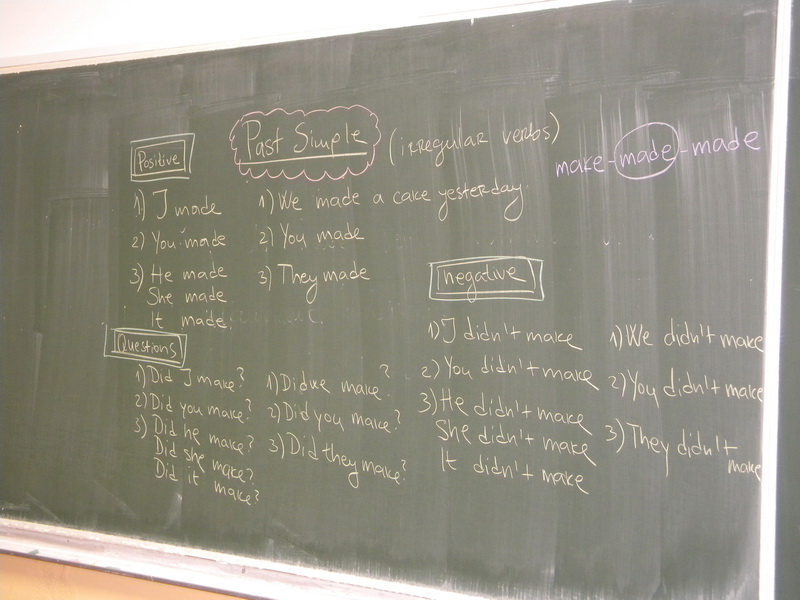 Past Simple (irregular verbs)
make - made - made
Positive
1) I made
2) You made
3) He made
She made
It made
1) We made a cake yesterday.
2) You made
3) They made
Questions
1) Did I make?
2) Did you make?
3) Did he make?
Did she make?
Did it make?
1) Did we make?
2) Did you make?
3) Did they make?
negative
1) I didn't make
2) You didn't make
3) He didn't make
She didn't make
It didn't make
1) We didn't make
2) You didn't make
3) They didn't
make